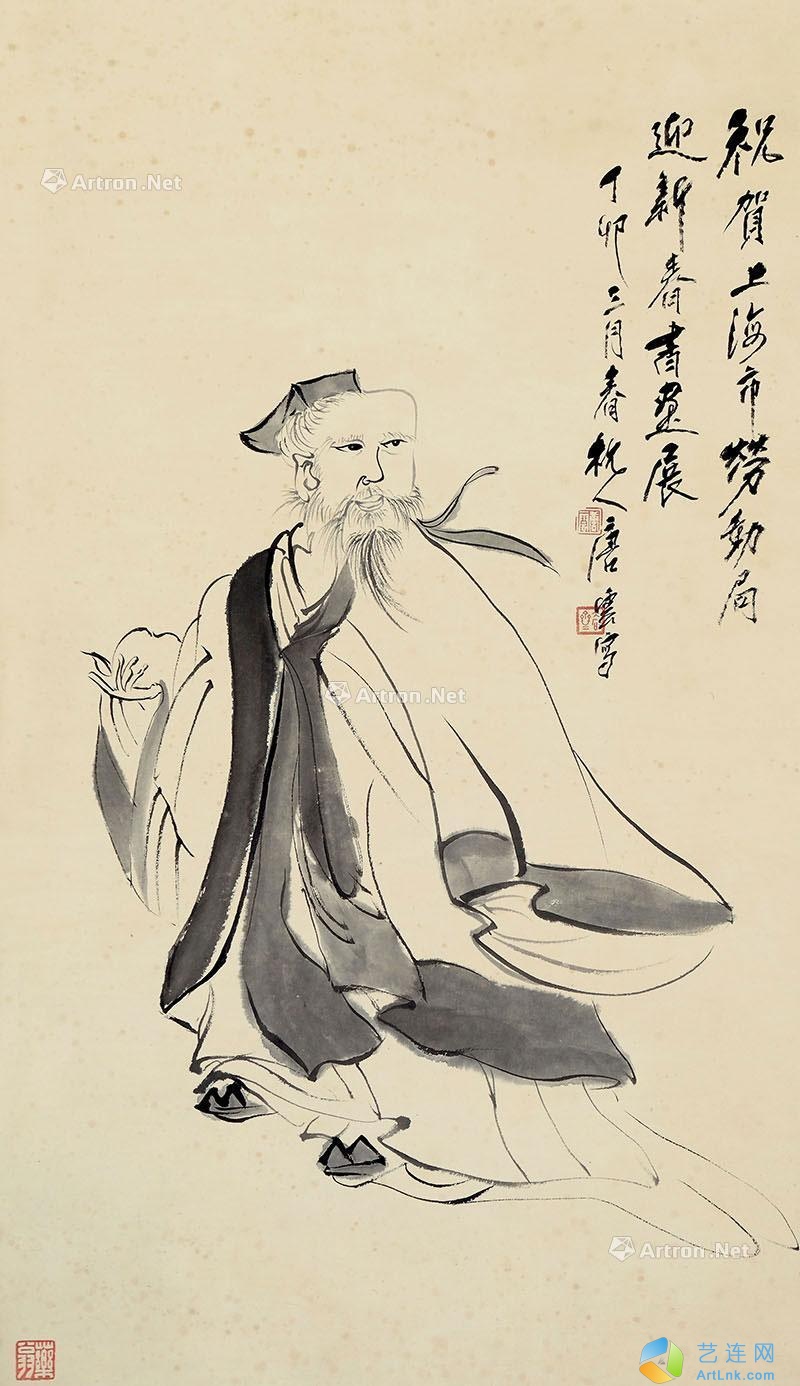 祝賀上海市勞動局
迎新春書畫展
丁卯三月春杭人唐雲寫
Artron.Net
Artron.Net
Artron.Net
藥翁
艺连网
ArtLnk.com